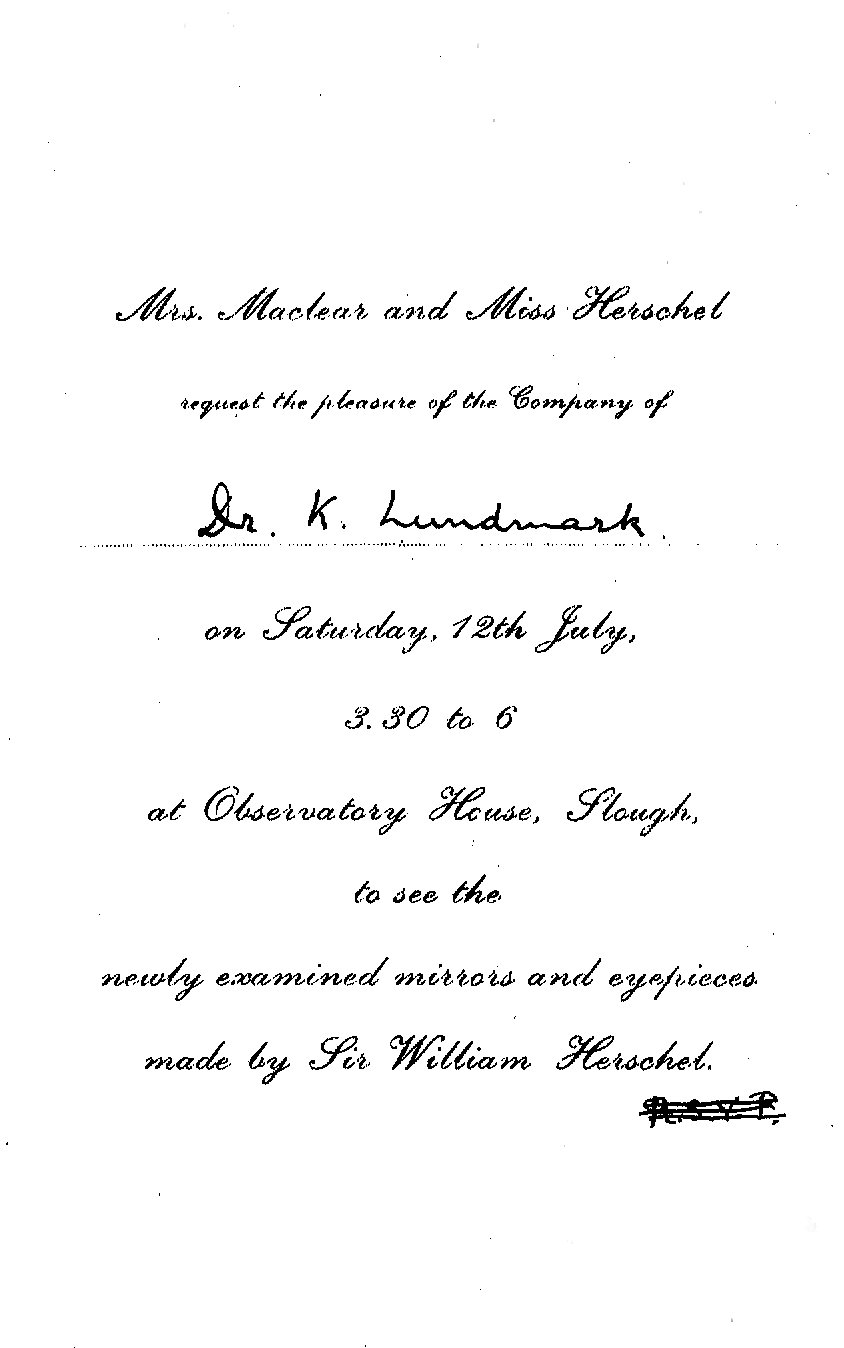 Mrs. Maclear and Miss Herschel
request the pleasure of the Company of
Dr. K. Lundmark.
on Saturday, 12th July,
3.30 to 6
at Observatory House, Slough,
to see the
newly examined mirrors and eyepieces
made by Sir William Herschel.
R.S.V.P.